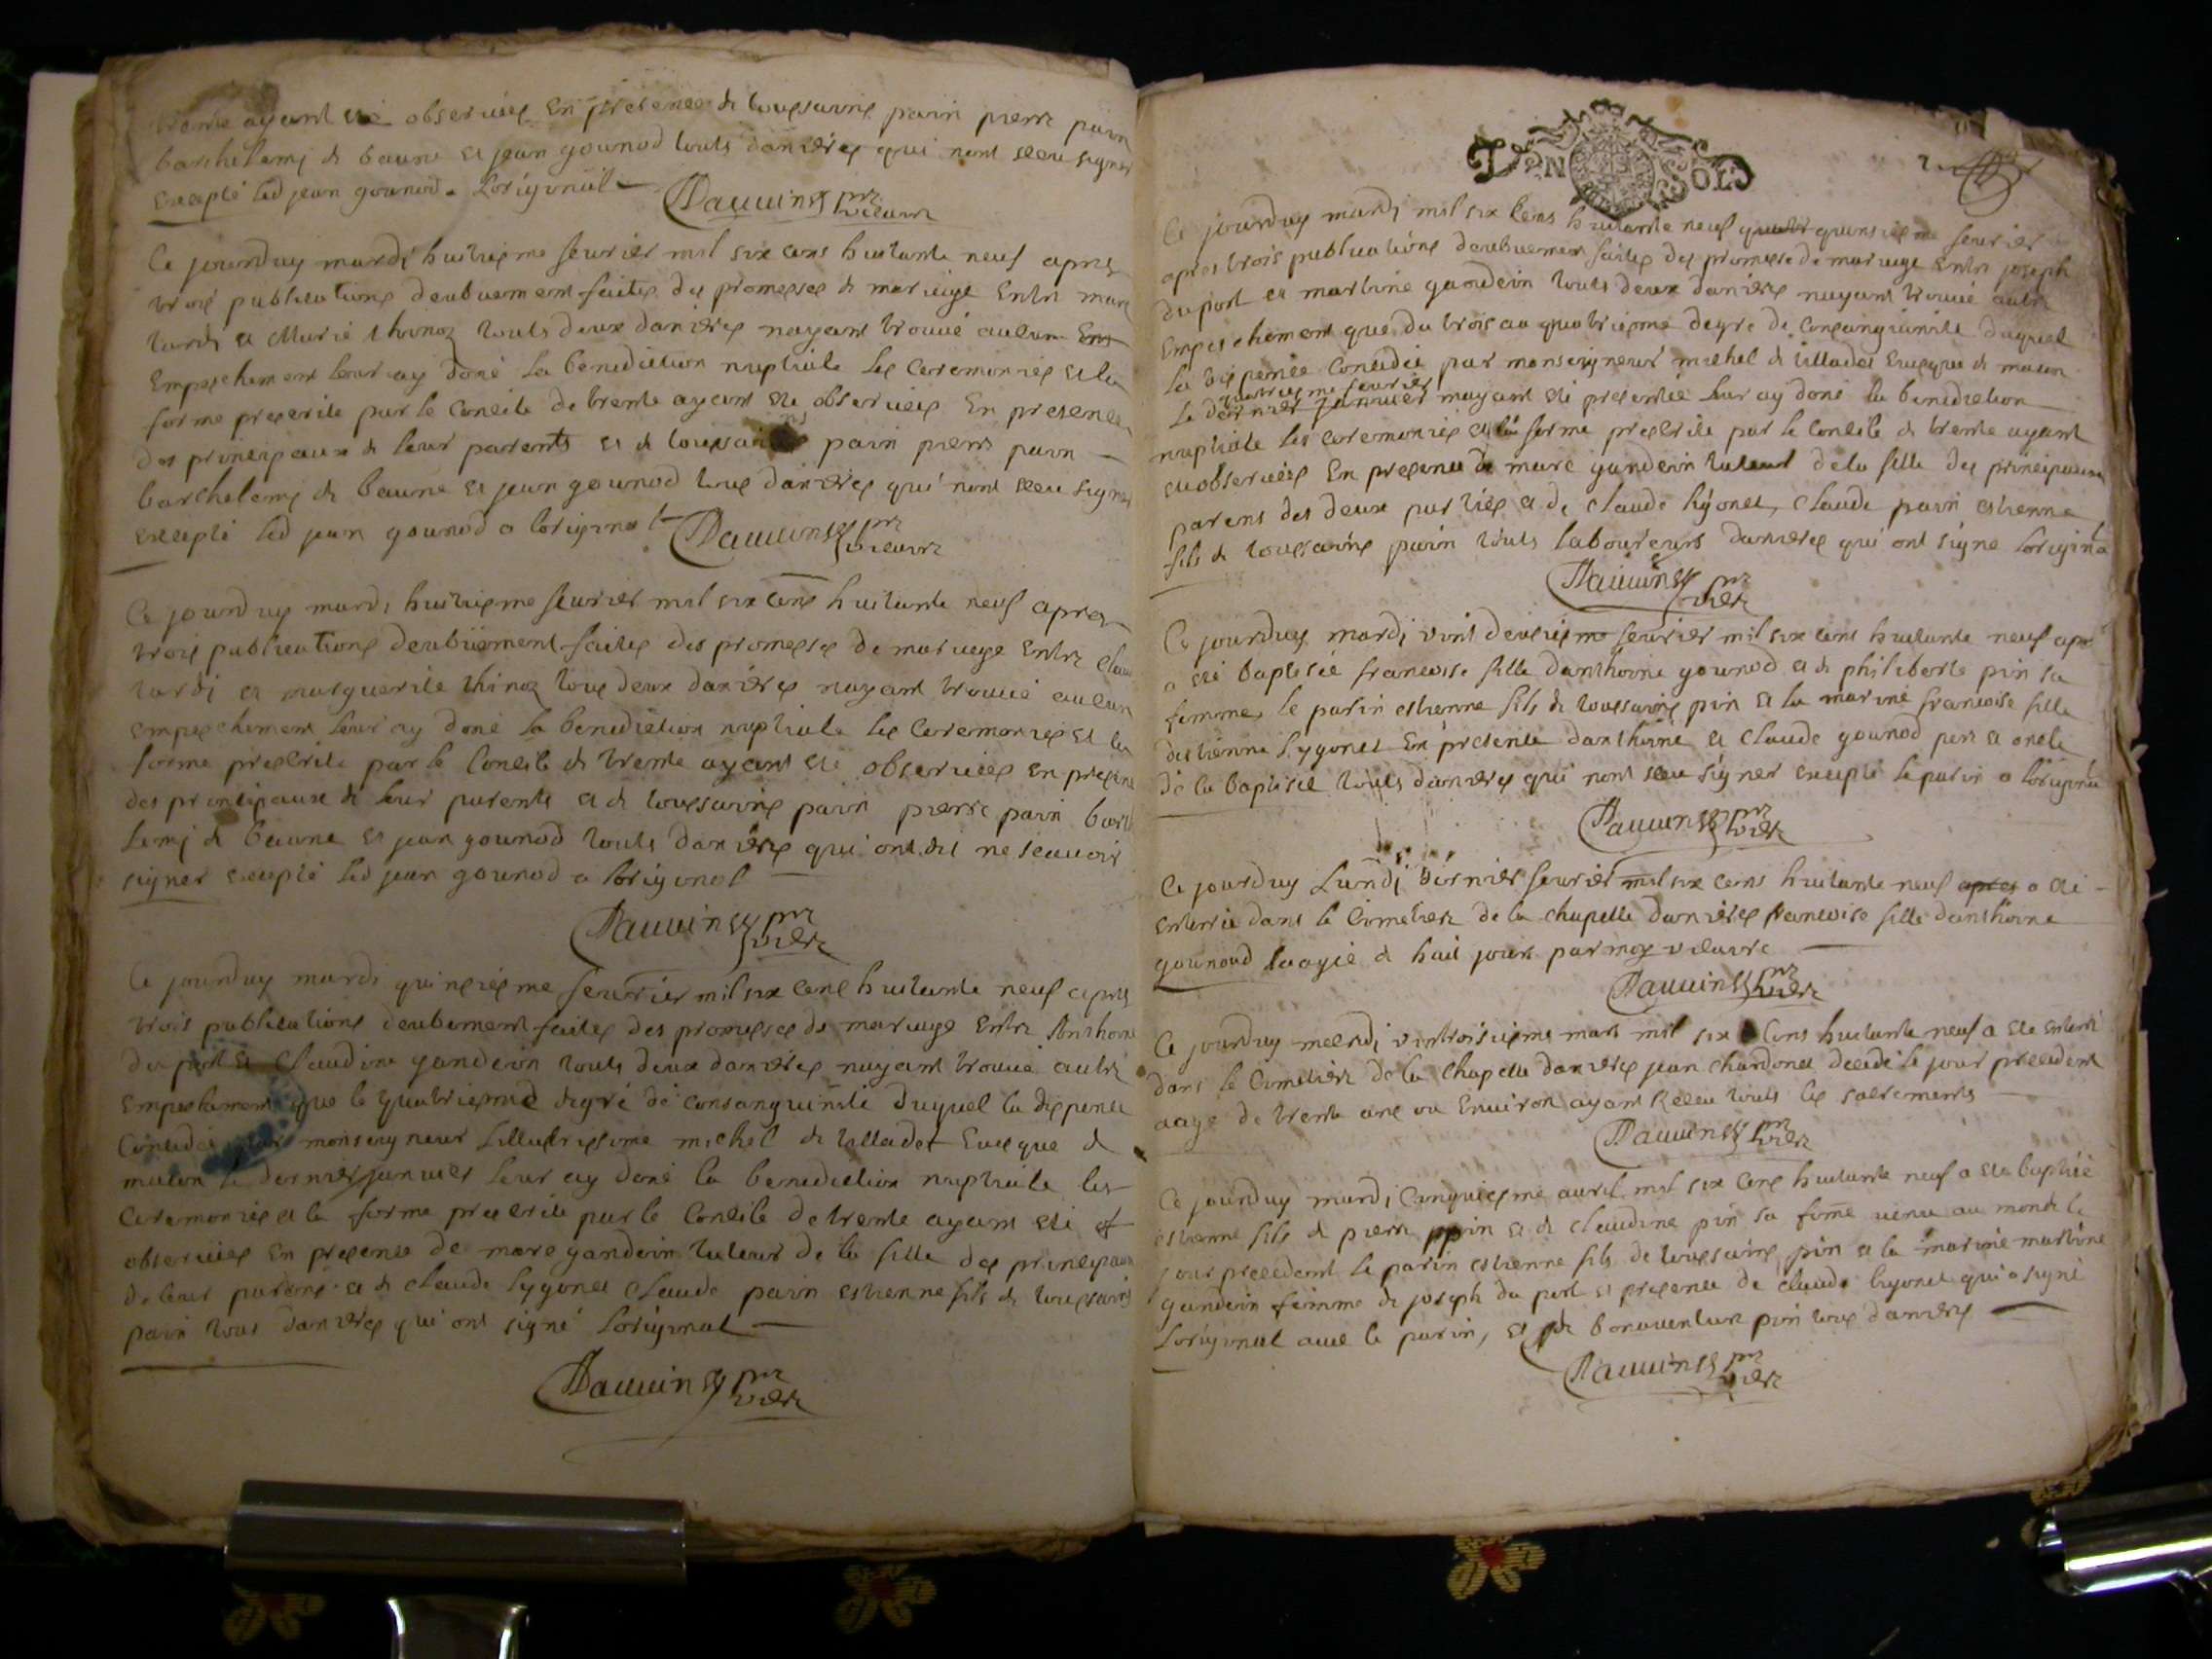 trente ayant esté observées En presence de toussainct pain pierre pain
barthelemj de baune et jean gounod touts danieres qui nont sceu signer
Excepté led jean gounod a Loriginal
Dauuinet pre vicaire
Ce jourdhuy mardi huitiesme feurier mil six cens huitante neuf apres
trois publications deubuement faites des promesses de mariage Entre marc
tardi et Marie thinoz touts deux danieres nayant trouué aucun
Empeschement leur ay doné la benediction nuptiale les Ceremonies et la
forme prescrite par le Concile de trente ayant esté obseruées En presence
des principaux de leur parents et de toussainct pain pierre pain
barthelemj de baune et jean gounod tous danieres qui nont sceu signer
excepté led jean gounod a loriginal
Dauuinet pre vicaire
Ce jourduy mardi huitiesme feurier mil six cens huitante neuf apres
trois publications deubuement faites des promesses de mariage Entre claude
tardi et marguerite thinoz tous deux danieres nayant trouué aucun
empeschement leur ay doné la benediction nuptiale les Ceremonies et la
forme prescrite par le Concile de trente ayant esté obseruées en presence
des principaux de leur parents et de toussainct pain pierre pain barthe
lemj de baune et jean gounod touts danieres qui ont dit ne scauoir
signer excepté led jean gounod a loriginal
Dauuinet pre vicre
Ce jourduy mardi quinsiesme feurier mil six cens huitante neuf apres
trois publications deubement faites des promesses de mariage Entre Anthoine
du port et Claudine gandein touts deux danieres nayant trouué autre
Empeschement que le quatriesme degré de consanguinité duquel la dispense
Concedée par monseigneur Lillustrissime michel de tilladet Euesque de
macon le dernier januier leur ay doné la benediction nuptiale les
Ceremonies et la forme prescrite par le Concile de trente ayant esté
obseruées En presence de marc gandein tuteur de la fille des principaux
de leur parens et de claude lygonet claude pain estienne fils de toussainct
pain tous danieres qui ont signé Loriginal
Dauuinet pre vicre
DEN SOLS
2
Ce jourduy mardi mil six cens huitante neuf quinsiesme feurier
apres trois publications deubuement faites des promesse de mariage Entre joseph
duport et martine gandein touts deux danieres nayant trouué autre
Empeschement que du trois au quatriesme degre de consanguinité duquel
la dispense Concedée par monseigneur michel de tilladet Euesque de macon
le dernier januier mayant esté presentée leur ay doné la benediction
nuptiale les ceremonies et la forme prescrite par le Concile de trente ayant
esté obseruées En presence de marc gandein tuteur de la fille des principaux
parens des deux parties et de claude lygonet, claude pain estienne
fils de toussainct pain touts laboureurs danieres qui ont signé loriginal
Dauuinet pre vicre
Ce jourduy mardj vint deusiesme feurier mil six cent huitante neuf
a esté baptisée francoise fille danthoine gounod et de philiberte pin sa
femme, le parin estienne fils de toussainct pin et la marine francoise fille
destienne lygonet En presence danthoine et claude gounod pere et oncle
de la baptisée touts danieres qui nont sceu signer excepté le parin a loriginal
Dauuinet pre vicre
Ce jourduy Lundj dernier feurier mil six cens huitante neuf a esté
enterrée dans le Cimetiere de la chapelle danieres francoise fille danthoine
gounoud aagée de huit jours par moy vicaire
Dauuinet pre vicre
Ce jourduy mecredi vintroisiesme mars mil six Cens huitante neuf a esté enterré
dans le Cimetiere de la chapelle danieres jean chardonet decedé le jour precedent
aagé de trente ans ou Enuiron ayant Receu touts les sacrements
Dauuinet pre vicre
Ce jourduy mardi Cinquiesme auril mil six cens huitante neuf a esté baptisé
estienne fils de pierre pin et de claudine pin sa fame venu au monde le
jour precedent le parin estienne fils de toussainct pin et la marine martine
gandein femme de joseph du port et presence de claude lygonet qui a signé
Loriginal auec le parin, et de bonauenture pin tous danieres
Dauuinet pre vicre